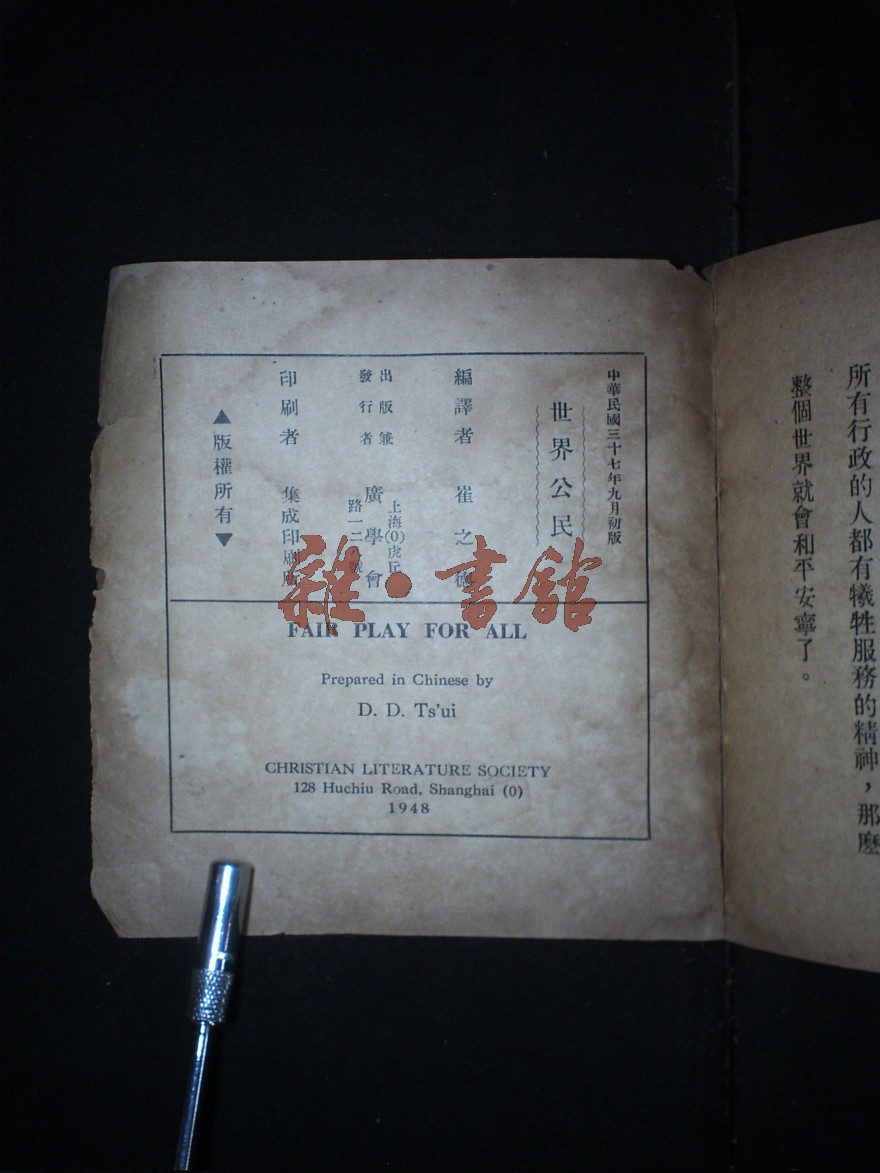 所有行政的人都有犧牲服務的精神，那麼
整個世界就會和平安寧了。
中華民國三十七年九月初版
世界公民
編譯者 崔之德
出版兼
發行者 廣學會
上海(0)虎丘
路一二八號
印刷者 集成印刷所
▲版權所有▼
雜·書館
FAIR PLAY FOR ALL
Prepared in Chinese by
D. D. Ts'ui
CHRISTIAN LITERATURE SOCIETY
128 Huchiu Road, Shanghai (0)
1948